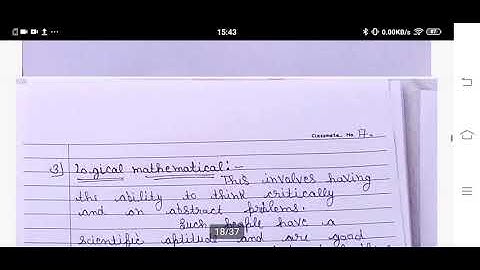 15:43
0.00KB/s
87
Classmate No 17.
3] Logical mathematical:-
This involves having
the ability to think critically
and on abstract problems.
Such people have a
18/37
scientific aptitude and are good